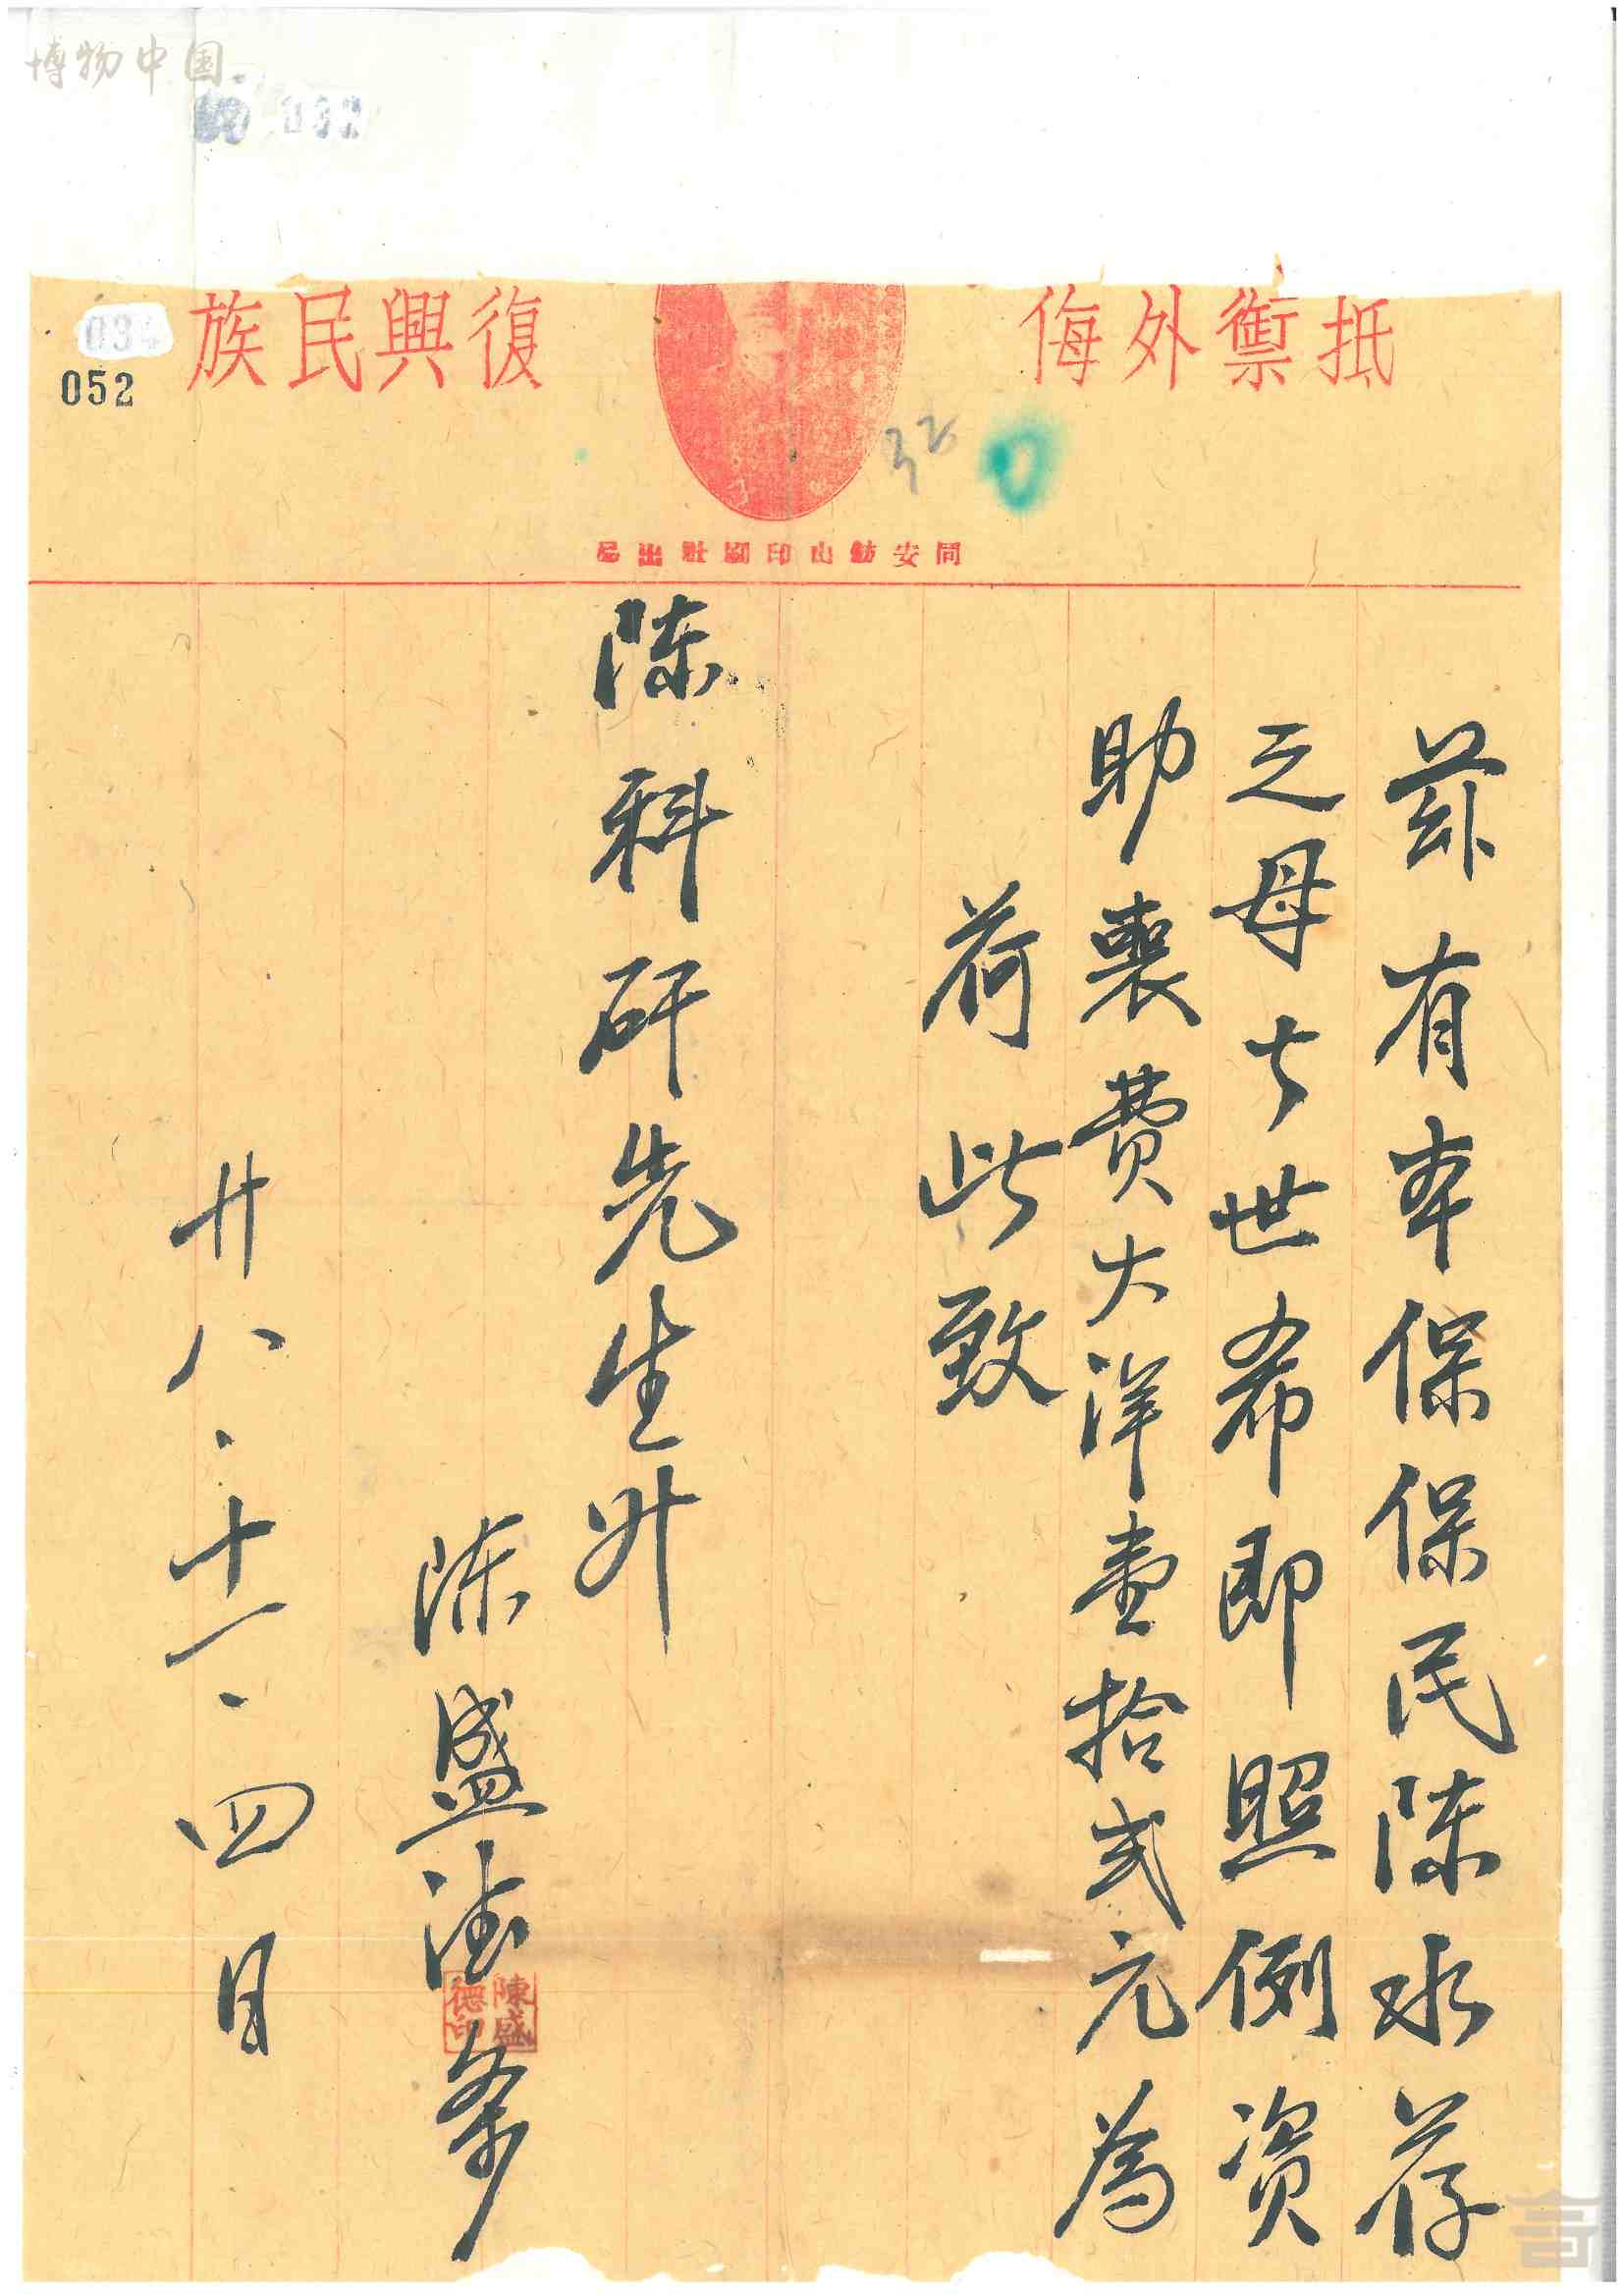 博物中国
032
抵禦外侮
復興民族
034
052
32
0
同安舫山印刷社出品
兹有本保保民陈水荐
之母亡世希即照例资
助喪费大洋壹拾弍元為
荷此致
陈科研先生升
陈盛德条
陳盛德印
廿八.十一.四日